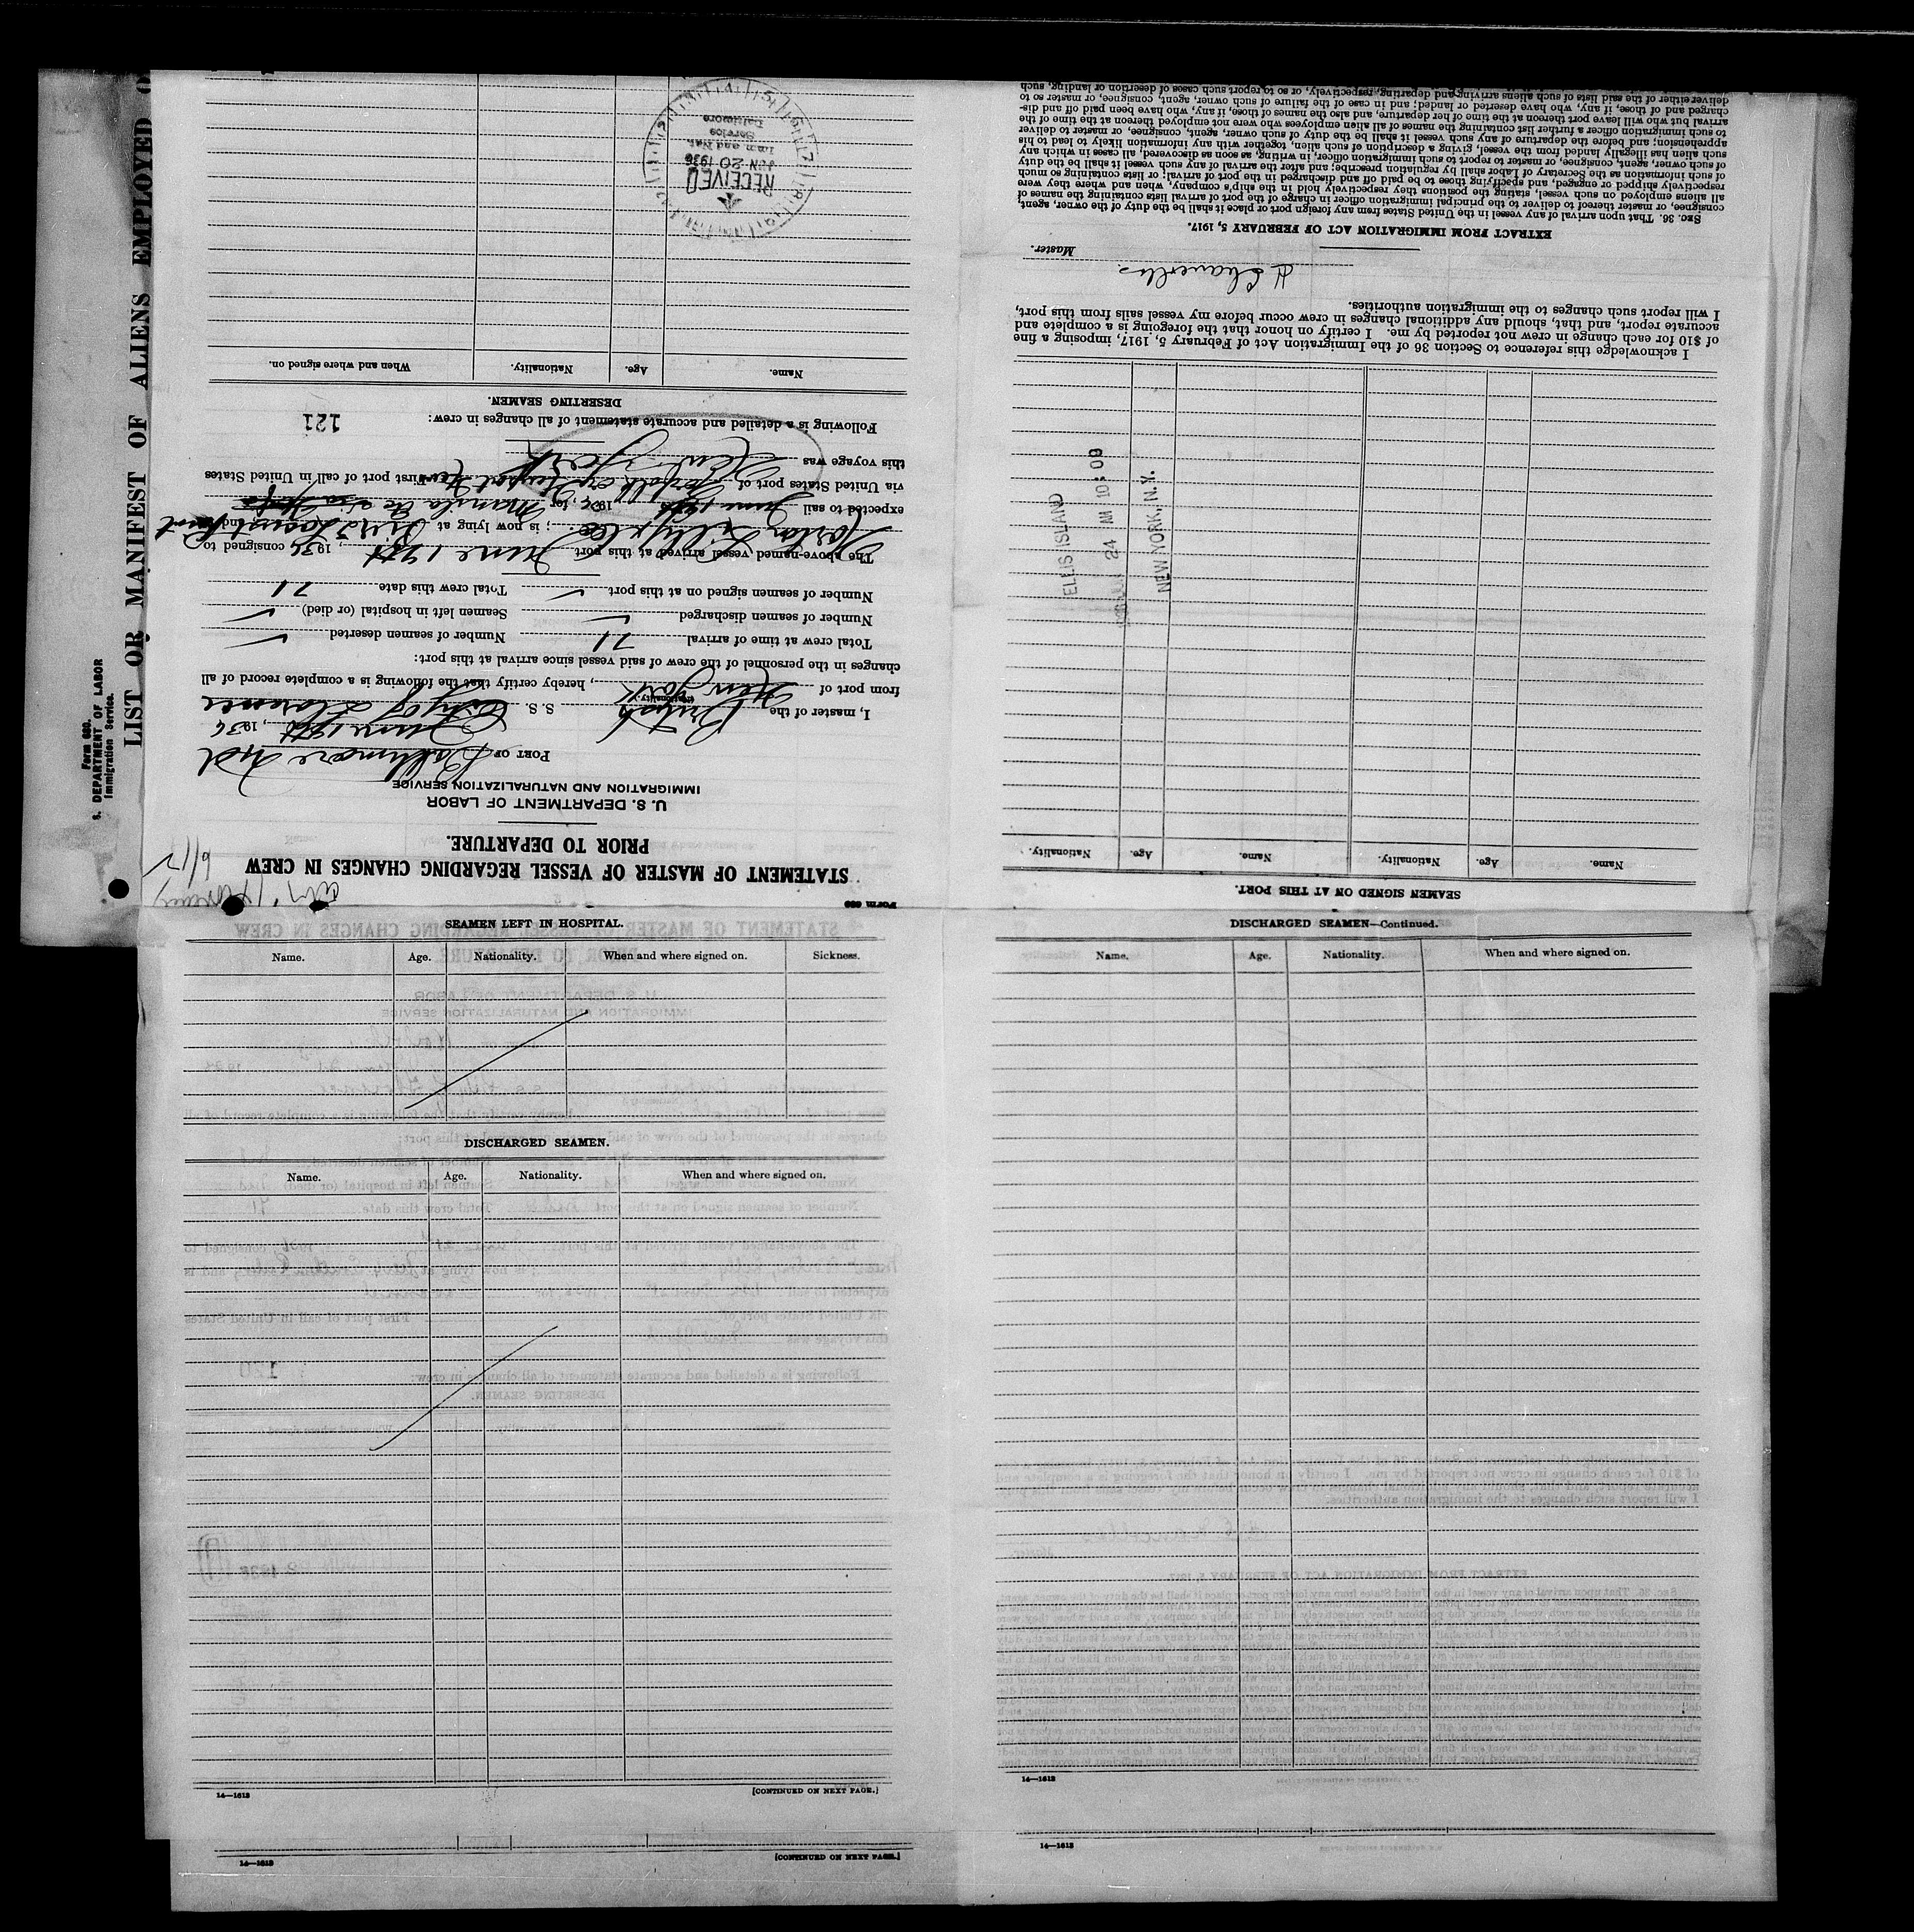 Form 680.
S. DEPARTMENT OF LABOR
Immigration Service.
LIST OR MANIFEST OF ALIENS EMPLOYED O
Form 689
STATEMENT OF MASTER OF VESSEL REGARDING CHANGES IN CREW
PRIOR TO DEPARTURE.
U. S. DEPARTMENT OF LABOR
IMMIGRATION AND NATURALIZATION SERVICE
PORT OF Baltimore Md
June 19th, 1936
I, master of the British S. S. City of Florence
(Nationality.)
from port of New York, hereby certify that the following is a complete record of all
changes in the personnel of the crew of said vessel since arrival at this port:
Total crew at time of arrival 71 Number of seamen deserted
Number of seamen discharged Seamen left in hospital (or died)
Number of seamen signed on at this port Total crew this date 71
The above-named vessel arrived at this port June 19th, 1936 consigned to
Norton Lilly & Co.; is now lying at Pier 3 Locust Point and is
expected to sail June 19th 1936, for Manila
via United States port of Norfolk or Newport News First port of call in United States
this voyage was New York
Following is a detailed and accurate statement of all changes in crew: 121
DESERTING SEAMEN.
Name. Age. Nationality. When and where signed on.
RECEIVED
JUN 20 1936
Imm and Nat.
Service
Baltimore
SEAMEN SIGNED ON AT THIS PORT.
Name. Age. Nationality. Name. Age. Nationality.
ELLIS ISLAND
24 AM 10:09
NEW YORK, N.Y.
I acknowledge this reference to Section 36 of the Immigration Act of February 5, 1917, imposing a fine
of $10 for each change in crew not reported by me. I certify on honor that the foregoing is a complete and
accurate report, and that, should any additional changes in crew occur before my vessel sails from this port,
I will report such changes to the immigration authorities.
Master.
EXTRACT FROM IMMIGRATION ACT OF FEBRUARY 5, 1917.
SEC. 36. That upon arrival of any vessel in the United States from any foreign port or place it shall be the duty of the owner, agent,
consignee, or master thereof to deliver to the principal immigration officer in charge of the port of arrival lists containing the names of
all aliens employed on such vessel, stating the positions they respectively hold in the ship's company, when and where they were
respectively shipped or engaged, and specifying those to be paid off and discharged in the port of arrival; or lists containing so much
of such information as the Secretary of Labor shall by regulation prescribe; and after the arrival of any such vessel it shall be the duty
of such owner, agent, consignee, or master to report to such immigration officer, in writing, as soon as discovered, all cases in which any
such alien has illegally landed from the vessel, giving a description of such alien, together with any information likely to lead to his
apprehension; and before the departure of any such vessel it shall be the duty of such owner, agent, consignee, or master to deliver
to such immigration officer a further list containing the names of all alien employees who were not employed thereon at the time of the
arrival but who will leave port thereon at the time of her departure, and also the names of those, if any, who have been paid off and dis-
charged and of those, if any, who have deserted or landed; and in case of the failure of such owner, agent, consignee, or master so to
deliver either of the said lists of such aliens arriving and departing, respectively, or so to report such cases of desertion or landing, such
SEAMEN LEFT IN HOSPITAL.
Name. Age. Nationality. When and where signed on. Sickness.
DISCHARGED SEAMEN.
Name. Age. Nationality. When and where signed on.
14—1613 [CONTINUED ON NEXT PAGE.]
14—1613 [CONTINUED ON NEXT PAGE.]
DISCHARGED SEAMEN—Continued.
Name. Age. Nationality. When and where signed on.
14—1613
14—1613